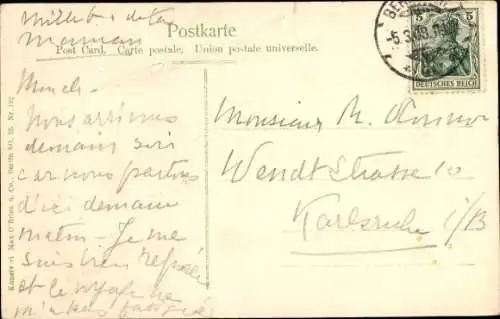 Postkarte
Post Card, Carte postale, Union postale universelle.
BER
5.3.
5 5
DEUTSCHES REICH
de ta
Maman
Nous arrivons
demain soir
car nous partons
d'ici demain
matin - Je me
suis bien reposée
et le voyage ne
m'a pas fatiguée
Monsieur M.
Wendt Strasse 10
Karlsruhe i/B
Kunstverl Max O'Brien & Co., Berlin SO. 33. Nr 192